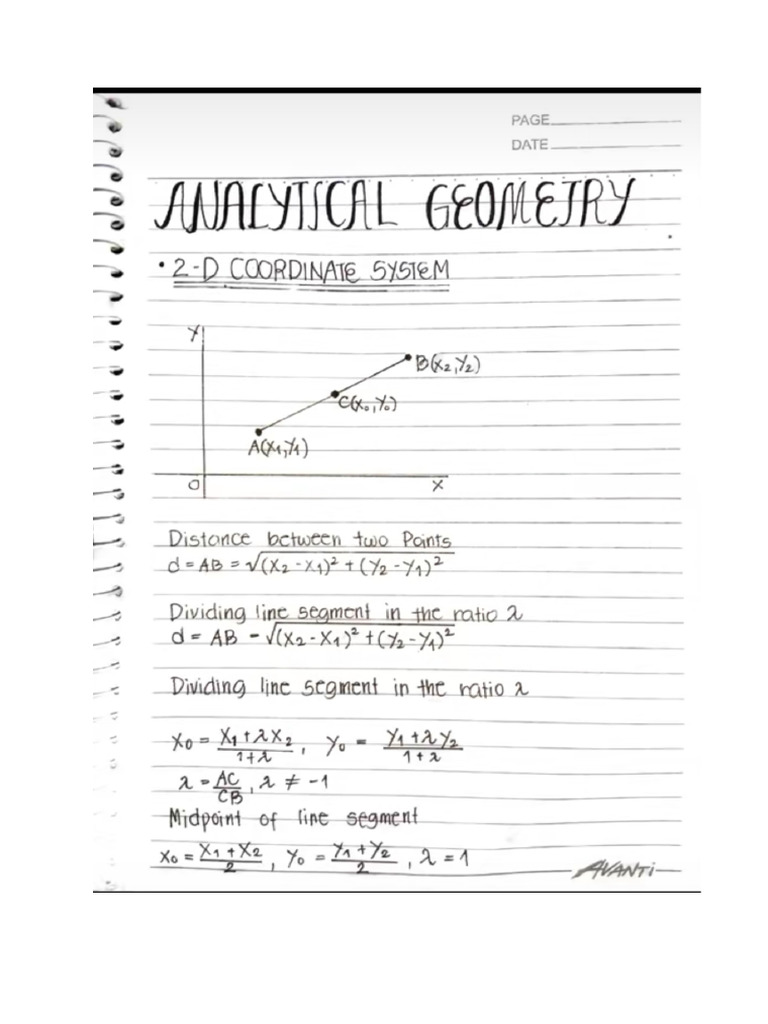 PAGE
DATE
ANALYTICAL GEOMETRY
• 2-D COORDINATE SYSTEM
Y
B(x₂,y₂)
C(x₀,y₀)
A(x₁,y₁)
O X
Distance between two Points
d = AB = √(x₂ - x₁)² + (y₂ - y₁)²
Dividing line segment in the ratio λ
d = AB = √(x₂ - x₁)² + (y₂ - y₁)²
Dividing line segment in the ratio λ
x₀ = x₁ + λx₂ / 1 + λ , y₀ = y₁ + λy₂ / 1 + λ
λ = AC / CB , λ ≠ -1
Midpoint of line segment
x₀ = x₁ + x₂ / 2 , y₀ = y₁ + y₂ / 2 , λ = 1
AVANTI